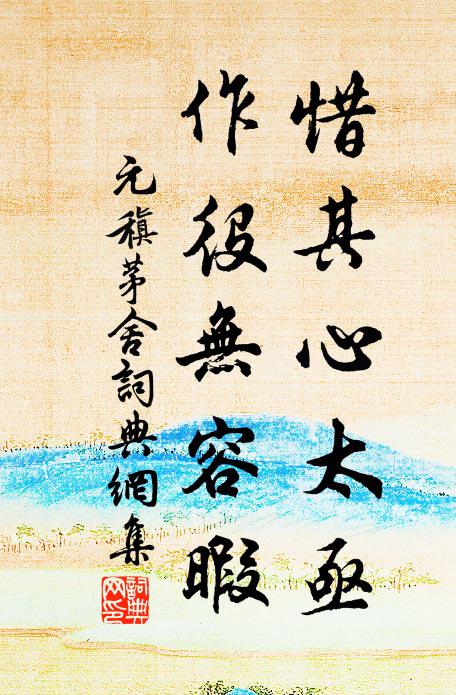 惜其心太亟
作役無容暇
元稹茅舍詞典網集
詞典
网印